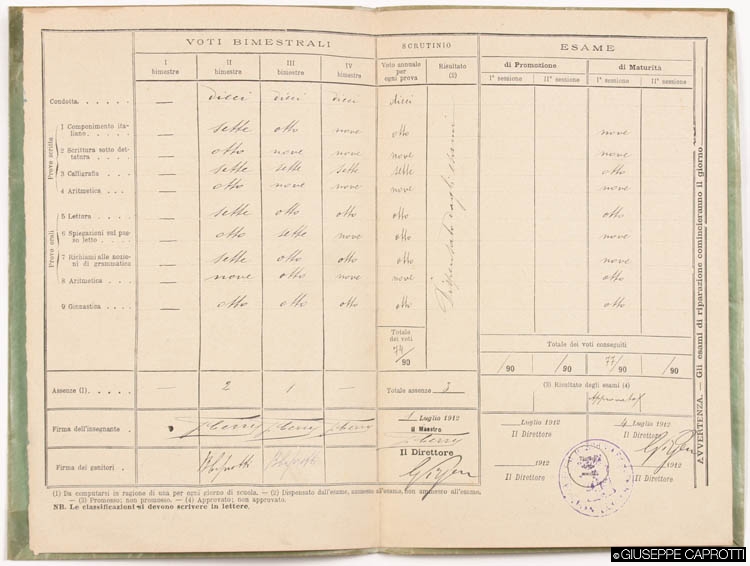 VOTI BIMESTRALI SCRUTINIO ESAME
I bimestre II bimestre III bimestre IV bimestre Voto annuale per ogni prova Risultato (2) di Promozione di Maturità
Iª sessione IIª sessione Iª sessione IIª sessione
Condotta — dieci dieci dieci dieci
Prove scritte
1 Componimento italiano — sette otto nove otto nove
2 Scrittura sotto dettatura — otto nove nove nove nove
3 Calligrafia — sette sette sette sette otto
4 Aritmetica — otto nove nove nove nove
Prove orali
5 Lettura — sette otto otto otto otto
6 Spiegazioni sul passo letto — otto sette nove otto nove
7 Richiami alle nozioni di grammatica — sette otto otto otto nove
8 Aritmetica — nove otto nove nove otto
9 Ginnastica — otto otto otto otto otto
Dispensato dagli esami
Totale dei voti 74/90
Totale dei voti conseguiti
/90 /90 77/90 /90
Assenze (1) — 2 1 — Totale assenze 3
(3) Risultato degli esami (4)
Approvato
Firma dell'insegnante
1 Luglio 1912
Il Maestro
Il Direttore
Luglio 1912
Il Direttore
4 Luglio 1912
Il Direttore
Firma dei genitori
1912
Il Direttore
1912
(1) Da computarsi in ragione di una per ogni giorno di scuola. — (2) Dispensato dall'esame, ammesso all'esame, non ammesso all'esame.
— (3) Promosso; non promosso. — (4) Approvato; non approvato.
NB. Le classificazioni si devono scrivere in lettere.
AVVERTENZA. — Gli esami di riparazione comincieranno il giorno
© GIUSEPPE CAPROTTI